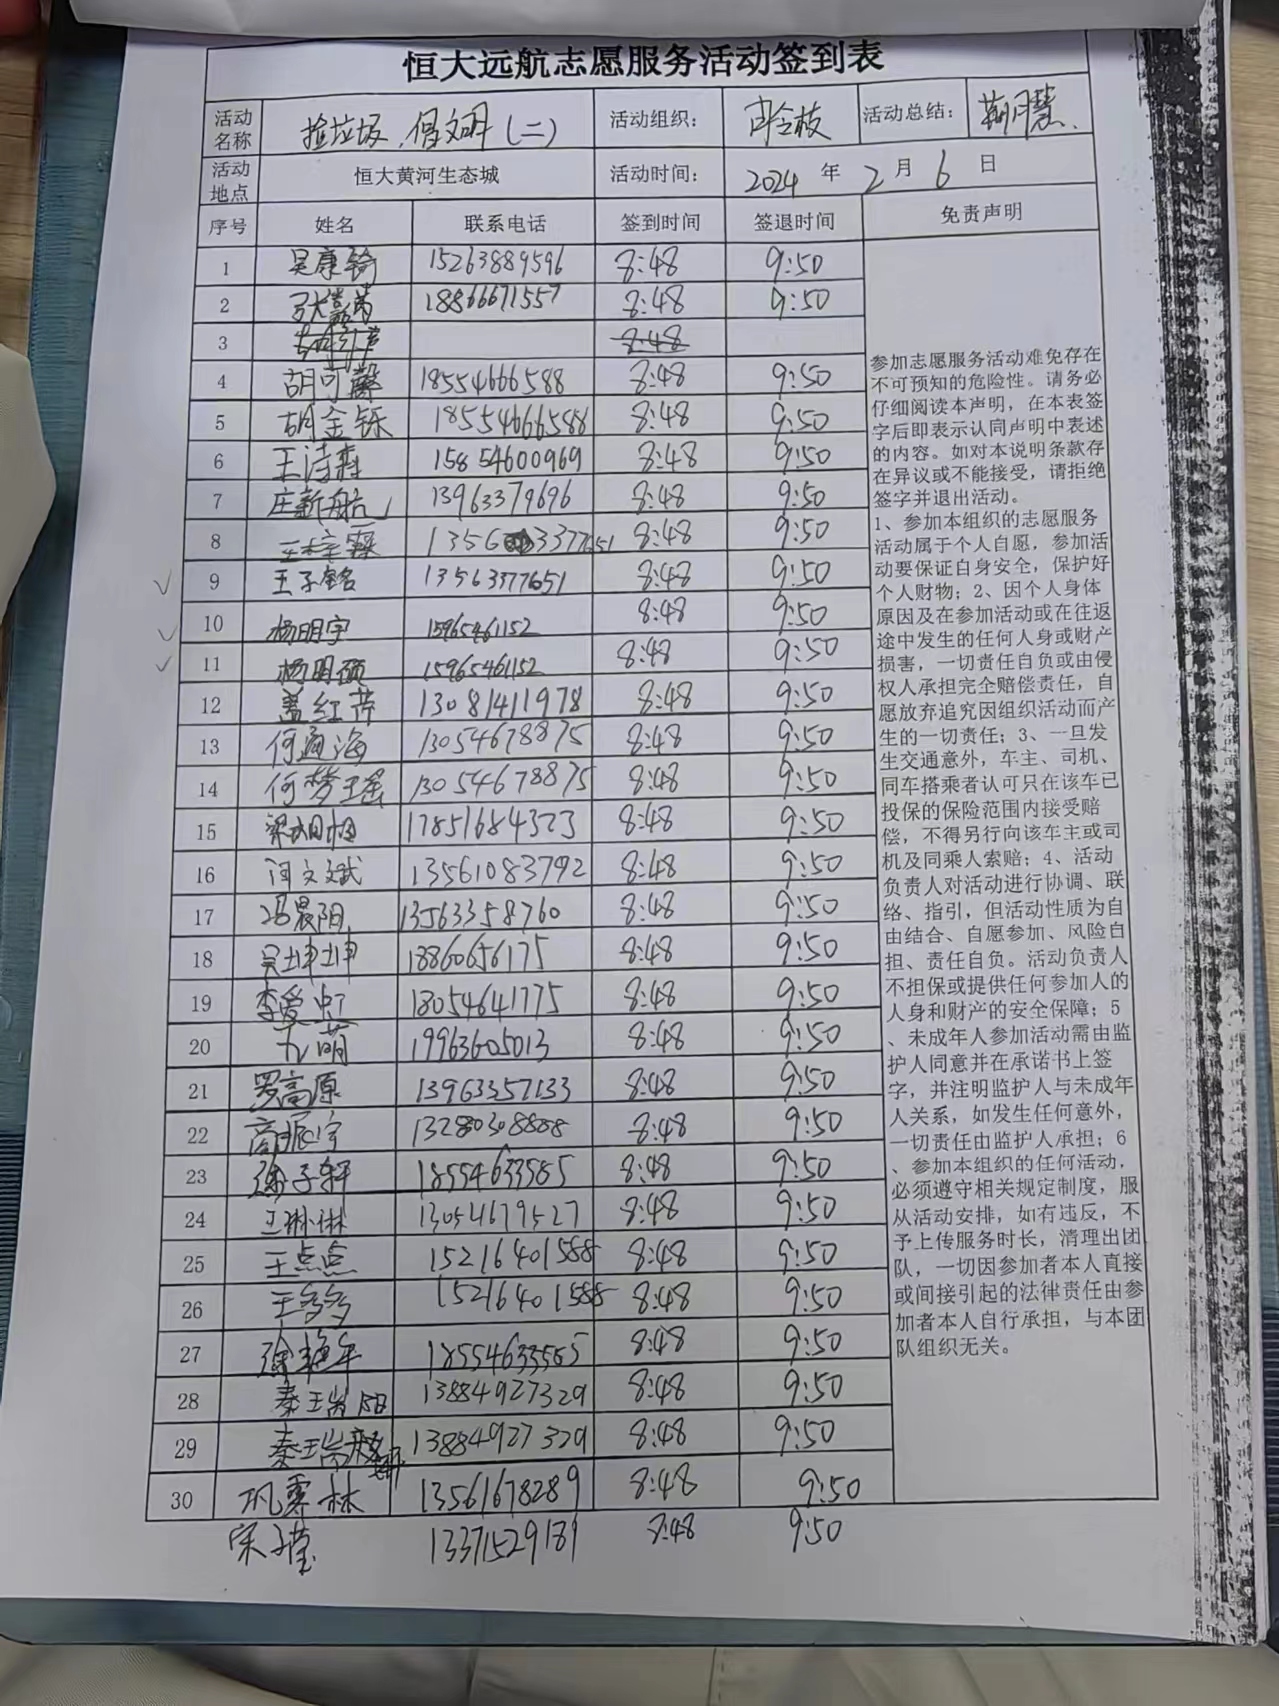 恒大远航志愿服务活动签到表
活动名称 捡垃圾、倡文明(二) 活动组织: 活动总结: 荆月慧
活动地点 恒大黄河生态城 活动时间: 2024 年 2 月 6 日
序号 姓名 联系电话 签到时间 签退时间 免责声明
1 吴康骑 15263889596 8:48 9:50
2 18866671557 8:48 9:50
3 8:48
4 胡可馨 18554666588 8:48 9:50
5 胡金铄 18554666588 8:48 9:50
6 王诗森 15854600969 8:48 9:50
7 庄新航 13963379696 8:48 9:50
8 王梓霖 1356 3377651 8:48 9:50
9 王子铭 13563377651 8:48 9:50
10 杨明宇 15965461152 8:48 9:50
11 杨明硕 15965461152 8:48 9:50
12 盖红芹 13081411978 8:48 9:50
13 何通海 13054678875 8:48 9:50
14 何梦瑶 13054678875 8:48 9:50
15 17851684323 8:48 9:50
16 闫文斌 13561083792 8:48 9:50
17 冯晨阳 13563358760 8:48 9:50
18 吴坤坤 18860656175 8:48 9:50
19 李爱虹 18054641775 8:48 9:50
20 19963605013 8:48 9:50
21 罗高原 13963357133 8:48 9:50
22 高振宇 13280308888 8:48 9:50
23 张子轩 18554633585 8:48 9:50
24 王琳琳 13054679527 8:48 9:50
25 王点点 15216401588 8:48 9:50
26 王多多 15216401588 8:48 9:50
27 18554633585 8:48 9:50
28 秦瑞阳 13884927329 8:48 9:50
29 13884927329 8:48 9:50
30 巩霁林 13561678289 8:48 9:50
宋子莹 13371529189 8:48 9:50
参加志愿服务活动难免存在
不可预知的危险性。请务必
仔细阅读本声明,在本表签
字后即表示认同声明中表述
的内容。如对本说明条款存
在异议或不能接受,请拒绝
签字并退出活动。
1、参加本组织的志愿服务
活动属于个人自愿,参加活
动要保证自身安全,保护好
个人财物;2、因个人身体
原因及在参加活动或在往返
途中发生的任何人身或财产
损害,一切责任自负或由侵
权人承担完全赔偿责任,自
愿放弃追究因组织活动而产
生的一切责任;3、一旦发
生交通意外,车主、司机、
同车搭乘者认可只在该车已
投保的保险范围内接受赔
偿,不得另行向该车主或司
机及同乘人索赔;4、活动
负责人对活动进行协调、联
络、指引,但活动性质为自
由结合、自愿参加、风险自
担、责任自负。活动负责人
不担保或提供任何参加人的
人身和财产的安全保障;5
、未成年人参加活动需由监
护人同意并在承诺书上签
字,并注明监护人与未成年
人关系,如发生任何意外,
一切责任由监护人承担;6
、参加本组织的任何活动,
必须遵守相关规定制度,服
从活动安排,如有违反,不
予上传服务时长,清理出团
队,一切因参加者本人直接
或间接引起的法律责任由参
加者本人自行承担,与本团
队组织无关。